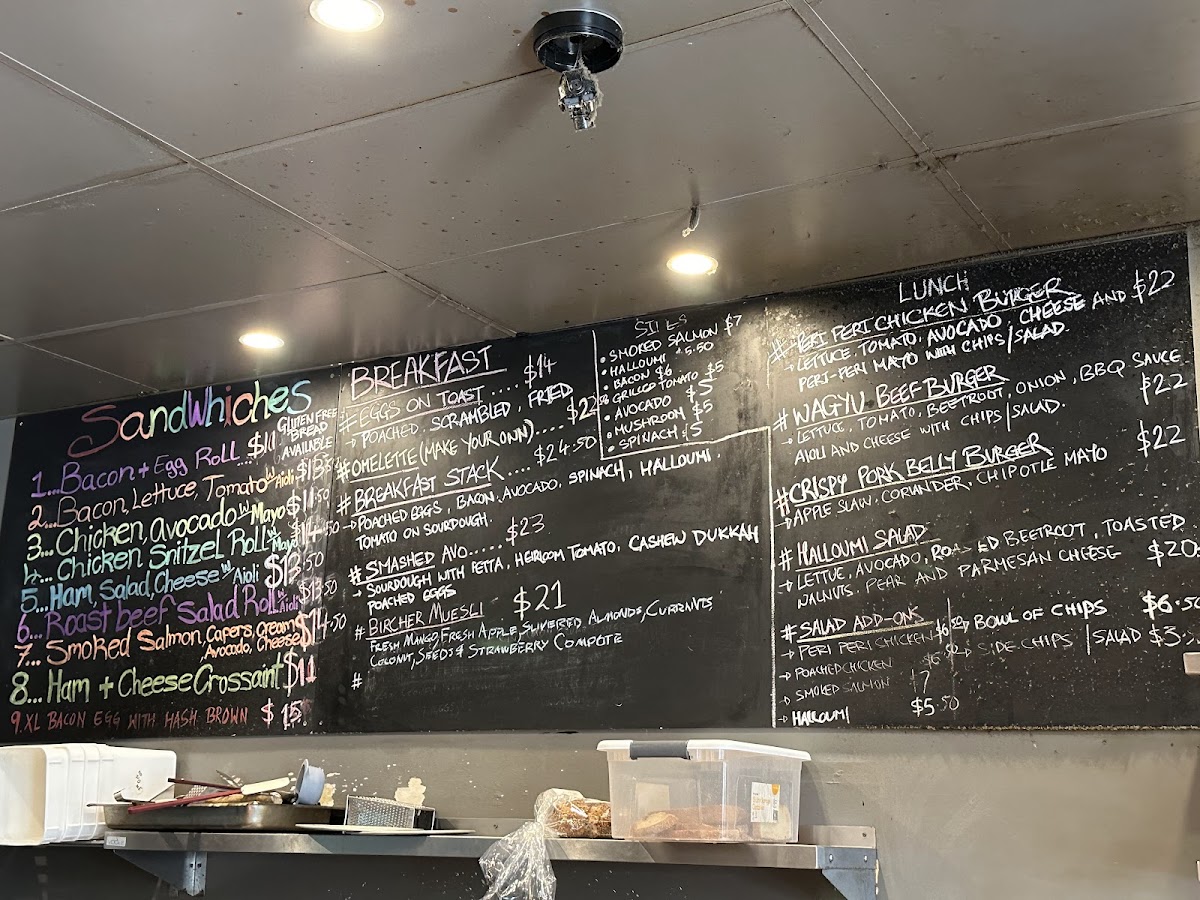 Sandwhiches
GLUTEN FREE
BREAD
AVAILABLE
1...Bacon + Egg Roll...$11
2...Bacon, Lettuce, Tomato w Aioli $13.50
3...Chicken, avocado w Mayo $11.50
4... Chicken Snitzel Roll w Mayo $14.50
5...Ham, Salad, Cheese w Aioli $13.50
6...Roast beef Salad Roll w Aioli $13.50
7... Smoked Salmon, Capers, Cream
Avocado, Cheese $14.50
8...Ham + Cheese Crossaint $11
9. XL BACON EGG WITH HASH BROWN $15
BREAKFAST
# EGGS ON TOAST.... $14
→ POACHED, SCRAMBLED, FRIED
# OMELETTE (MAKE YOUR OWN).... $22
# BREAKFAST STACK.... $24.50
→ POACHED EGGS, BACON, AVOCADO, SPINACH, HALLOUMI,
TOMATO ON SOURDOUGH.
# SMASHED AVO..... $23
→ SOURDOUGH WITH FETTA, HEIRLOOM TOMATO, CASHEW DUKKAH
POACHED EGGS
# BIRCHER MUESLI $21
FRESH MANGO, FRESH APPLE, SLIVERED ALMONDS, CURRANTS
COCONUT, SEEDS & STRAWBERRY COMPOTE
#
SIDES
• SMOKED SALMON $7
• HALLOUMI $5.50
• BACON $6
• GRILLED TOMATO $5
• AVOCADO $5
• MUSHROOM $5
• SPINACH $5
LUNCH
# PERI PERI CHICKEN BURGER $22
→ LETTUCE, TOMATO, AVOCADO, CHEESE AND
PERI-PERI MAYO WITH CHIPS/SALAD.
# WAGYU BEEF BURGER $22
→ LETTUCE, TOMATO, BEETROOT, ONION, BBQ SAUCE
AIOLI AND CHEESE WITH CHIPS/SALAD.
# CRISPY PORK BELLY BURGER $22
→ APPLE SLAW, CORIANDER, CHIPOTLE MAYO
# HALLOUMI SALAD
→ LETTUE, AVOCADO, ED BEETROOT, TOASTED
WALNUTS, PEAR AND PARMESAN CHEESE $20
# SALAD ADD-ONS
→ PERI PERI CHICKEN $6.50
→ POACHED CHICKEN $6.50
→ SMOKED SALMON 7
→ HALLOUMI $5.50
→ BOWL OF CHIPS $6.50
→ SIDE CHIPS / SALAD $3.